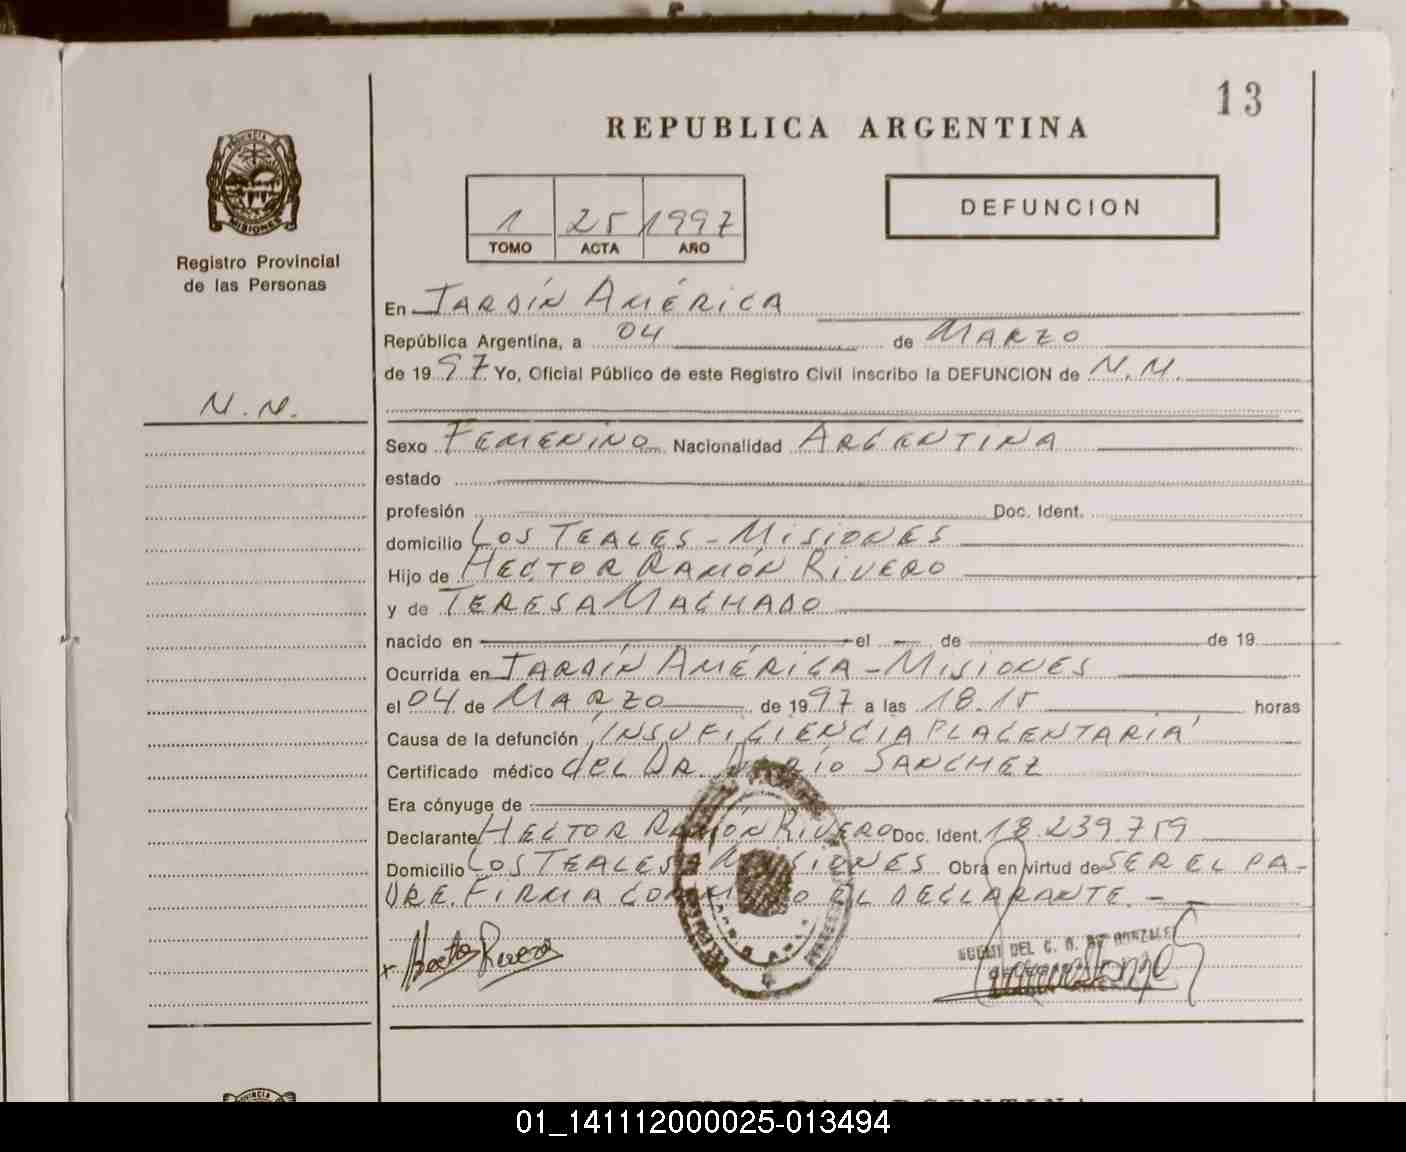 13
REPUBLICA ARGENTINA
PROVINCIA DE
MISIONES
Registro Provincial
de las Personas
1 25 1997
TOMO ACTA AÑO
DEFUNCION
En JARDÍN AMÉRICA
República Argentina, a 04 de MARZO
de 1997 Yo, Oficial Público de este Registro Civil inscribo la DEFUNCION de N.N.
N.N.
Sexo FEMENINO Nacionalidad ARGENTINA
estado
profesión Doc. Ident.
domicilio LOS TEALES - MISIONES
Hijo de HECTOR RAMÓN RIVERO
y de TERESA MACHADO
nacido en el de de 19
Ocurrida en JARDÍN AMÉRICA - MISIONES
el 04 de MARZO de 1997 a las 18.15 horas
Causa de la defunción "INSUFICIENCIA PLACENTARIA"
Certificado médico del DR. DARÍO SANCHEZ
Era cónyuge de
Declarante HECTOR RAMÓN RIVERO Doc. Ident. 18.239.759
Domicilio LOS TEALES - MISIONES Obra en virtud de SER EL PA-
DRE. FIRMA CONMIGO EL DECLARANTE. -
x Hector Rivero
DEL C. DE GONZALEZ
01_141112000025-013494